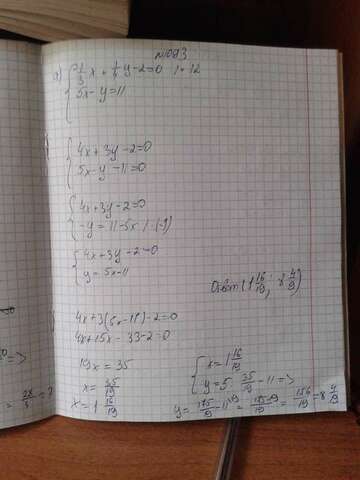 №1093
а) { 1/3 x + 1/4 y - 2 = 0 | * 12
5x - y = 11
{ 4x + 3y - 2 = 0
5x - y - 11 = 0
{ 4x + 3y - 2 = 0
-y = 11 - 5x | · (-1)
{ 4x + 3y - 2 = 0
y = 5x - 11
Ответ (1 16/19; 8 4/9)
4x + 3(5x - 11) - 2 = 0
4x + 15x - 33 - 2 = 0
19x = 35
x = 35/19
x = 1 16/19
{ x = 1 16/19
y = 5 · 35/19 - 11 =>